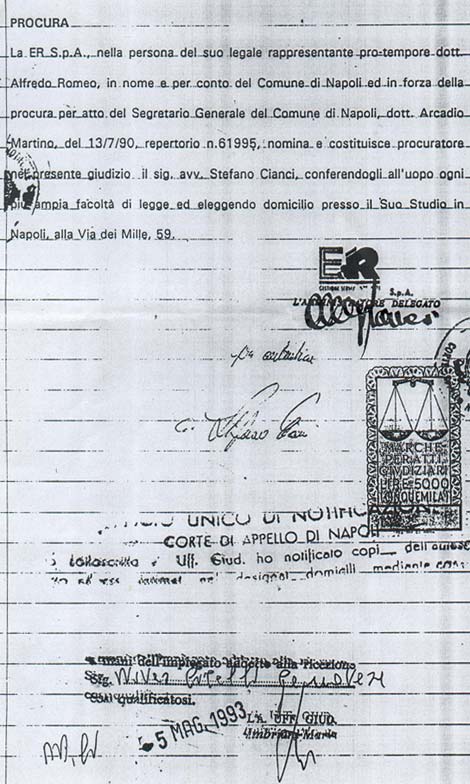 PROCURA
La ER S.p.A., nella persona del suo legale rappresentante pro-tempore dott.
Alfredo Romeo, in nome e per conto del Comune di Napoli ed in forza della
procura per atto del Segretario Generale del Comune di Napoli, dott. Arcadio
Martino, del 13/7/90, repertorio n.61995, nomina e costituisce procuratore
nel presente giudizio il sig. avv. Stefano Cianci, conferendogli all'uopo ogni
più ampia facoltà di legge ed eleggendo domicilio presso il Suo Studio in
Napoli, alla Via dei Mille, 59.
ER
S.p.A.
L'AMMINISTRATORE DELEGATO
per autentica
MARCHE
PER ATTI
GIUDIZIARI
LIRE 5000
CINQUEMILA
UNICO DI NOTIFICAZIONE
CORTE DI APPELLO DI NAPOLI
Uff. Giud. ho notificato copi
domicili mediante
a mani dell'impiegato addetto alla ricezione
Sig.
così qualificatosi.
5 MAG. 1993
L'A. UFF. GIUD.
Maria